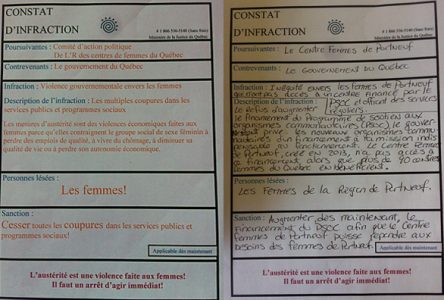 CONSTAT
D'INFRACTION
# 1 866 536-5140 (Sans frais)
Ministère de la Justice du Québec
Poursuivantes : Comité d'action politique
De L'R des centres de femmes du Québec
Contrevenants : Le gouvernement du Québec
Infraction : Violence gouvernementale envers les femmes
Description de l'infraction : Les multiples coupures dans les
services publics et programmes sociaux
Les mesures d'austérité sont des violences économiques faites aux
femmes parce qu'elles contraignent le groupe social de sexe féminin à
perdre des emplois de qualité, à vivre du chômage, à diminuer sa
qualité de vie ou à perdre son autonomie économique.
Personnes lésées :
Les femmes!
Sanction :
Cesser toutes les coupures dans les services publics et
programmes sociaux!
Applicable dès maintenant
L'austérité est une violence faite aux femmes!
Il faut un arrêt d'agir immédiat!
CONSTAT
D'INFRACTION
Ministère de la Justice du Québec
Poursuivantes : Le Centre Femmes de Portneuf
Contrevenants : Le Gouvernement du Québec
Infraction : Inéquité envers les femmes de Portneuf
accès à un centre financé par le
Description de l'infraction : PSOC et offrant des services
Le Refus d'augmenter
le financement du Programme de soutien aux
organismes communautaires (PSOC), le gouver-
prive les nouveaux organismes commu-
nautaires d'un financement à la mission indis-
pensable au fonctionnement. Le Centre Femmes
de Portneuf, créé en 2013, n'a pas accès à
ce financement alors que plus de 90 centres
femmes du Québec en bénéficient.
Personnes lésées :
Les Femmes de la Région de Portneuf.
Sanction : Augmenter dès maintenant, le
financement du PSOC afin que le Centre
femmes de Portneuf puisse répondre aux
besoins des femmes de Portneuf.
Applicable dès maintenant
L'austérité est une violence faite aux femmes!
Il faut un arrêt d'agir immédiat!